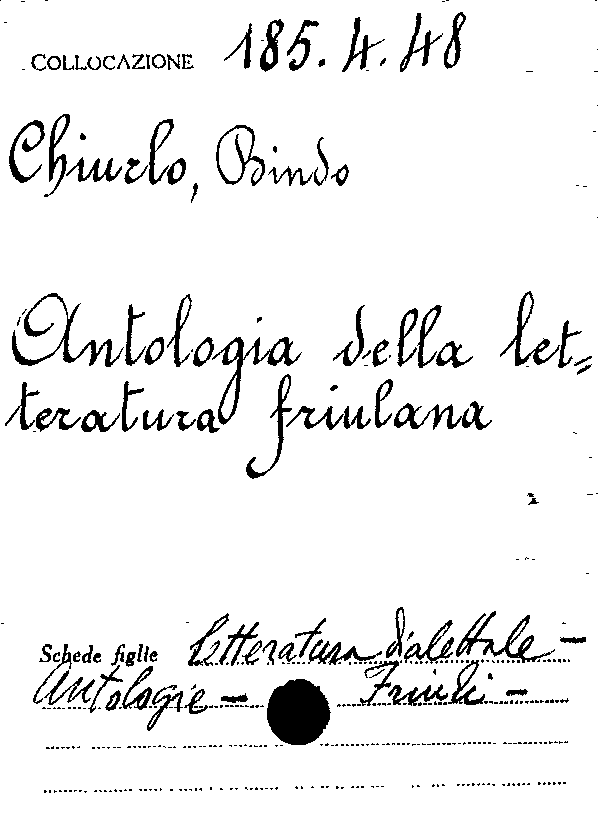 COLLOCAZIONE 185.4.48
Chiurlo, Bindo
Antologia della let=
teratura friulana
Schede figlie Letteratura dialettale –
Antologie – Friuli –